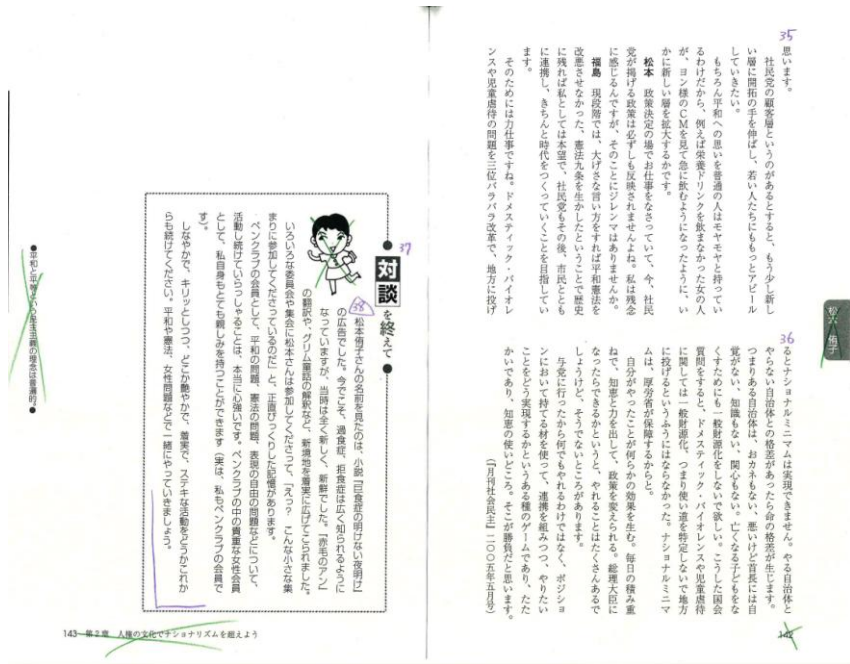 35
思います。
社民党の顧客層というのがあるとすると、もう少し新し
い層に開拓の手を伸ばし、若い人たちにももっとアピール
していきたい。
もちろん平和への思いを普通の人はモヤモヤと持ってい
るわけだから、例えば栄養ドリンクを飲まなかった女の人
が、ヨン様のCMを見て急に飲むようになったように、い
かに新しい層を拡大するかです。
松本　政策決定の場でお仕事をなさっていて、今、社民
党が掲げる政策は必ずしも反映されませんよね。私は残念
に感じるんですが、そのことにジレンマはありませんか。
福島　現段階では、大げさな言い方をすれば平和憲法を
改悪させなかった、憲法九条を生かしたということで歴史
に残れば私としては本望で、社民党もその後、市民ととも
に連携し、きちんと時代をつくっていくことを目指してい
ます。
そのためには力仕事ですね。ドメスティック・バイオレ
ンスや児童虐待の問題を三位バラバラ改革で、地方に投げ
36
るとナショナルミニマムは実現できません。やる自治体と
やらない自治体との格差があったら命の格差が生じます。
つまりある自治体は、おカネもない、悪いけど首長には自
覚がない、知識もない、関心もない。亡くなる子どもをな
くすためにも一般財源化をしないで欲しい。こうした国会
質問をすると、ドメスティック・バイオレンスや児童虐待
に関しては一般財源化、つまり使い道を特定しないで地方
に投げるというふうにはならなかった。ナショナルミニマ
ムは、厚労省が保障するからと。
自分がやったことが何らかの効果を生む。毎日の積み重
ねで、知恵と力を出して、政策を変えられる。総理大臣に
なったらできるかというと、やれることはたくさんあるで
しょうけど、そうでないところがあります。
与党に行ったから何でもやれるわけではなく、ポジショ
ンにおいて持てる材を使って、連携を組みつつ、やりたい
ことをどう実現するかというある種のゲームであり、たた
かいであり、知恵の使いどころ。そこが勝負だと思います。
（『月刊社会民主』二〇〇五年五月号）
松本侑子
142
37
●対談を終えて●
38
松本侑子さんの名前を見たのは、小説『巨食症の明けない夜明け』
の広告でした。今でこそ、過食症、拒食症は広く知られるように
なっていますが、当時は全く新しく、新鮮でした。『赤毛のアン』
の翻訳や、グリム童話の解釈など、新境地を着実に広げてこられました。
いろいろな委員会や集会に松本さんは参加してくださって、「えっ？　こんな小さな集
まりに参加してくださっているのだ」と、正直びっくりした記憶があります。
ペンクラブの会員として、平和の問題、憲法の問題、表現の自由の問題などについて、
活動し続けていらっしゃることは、本当に心強いです。ペンクラブの中の貴重な女性会員
として、私自身もとても親しみを持つことができます（実は、私もペンクラブの会員で
す）。
しなやかで、キリッとしつつ、どこか艶やかで、着実で、ステキな活動をどうかこれか
らも続けてください。平和や憲法、女性問題などで一緒にやっていきましょう。
●平和と平等という民主主義の理念は普遍的。●
143　第2章　人権の文化でナショナリズムを超えよう